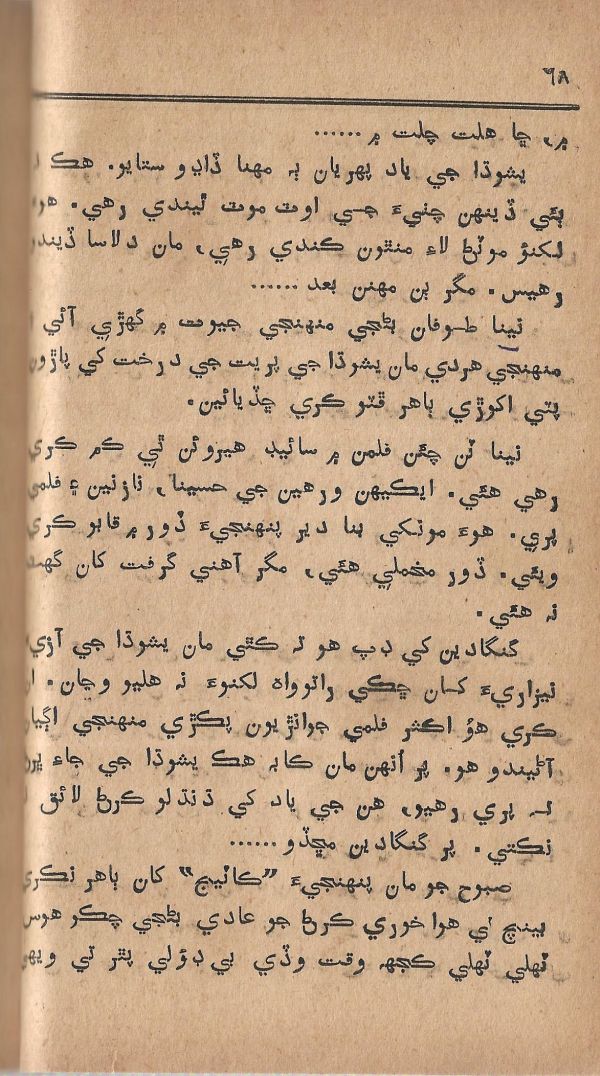 ٦٨
۾، ڇا هلت چلت ۾ ......
يشوڌا جي ياد پهريان ٻه مهنا ڏاڍو ستايو. هڪ
ٻئي ڏينهن چٺيءَ جي اوت موت ٿيندي رهي. هوءَ
لکنؤ موٽڻ لاءِ منٿون ڪندي رهي، مان دلاسا ڏيندو
رهيس. مگر ٻن مهنن بعد ......
نينا طوفان بڻجي منهنجي جيوت ۾ گهڙي آئي
منهنجي هردي مان يشوڌا جي پريت جي درخت کي پاڙون
پٽي اکوڙي ٻاهر ڦٽو ڪري ڇڏيائين.
نينا ٽن چئن فلمن ۾ سائيڊ هيروئن ٿي ڪم ڪري
رهي هئي. ايڪيهن ورهين جي حسينا، نازنين ۽ فلمي
پري. هوءَ مونکي بنا دير پنهنجيءَ ڏور ۾ قابو ڪري
ويئي. ڏور مخملي هئي، مگر آهني گرفت کان گهٽ
نه هئي.
گنگادين کي ڊپ هو ته ڪٿي مان يشوڌا جي آزي
نيزاريءَ کان ڇڪي راتوواه لکنوءَ نه هليو وڃان.
ڪري هؤ اڪثر فلمي جوانڙيون پڪڙي منهنجي اڳيان
آڻيندو هو. پر اُنهن مان ڪابه هڪ يشوڌا جي جاءِ ڀري
نه پري رهيو، هن جي ياد کي ڌنڌلو ڪرڻ لائق
نڪتي. پر گنگادين مڃڏو ......
صبوح جو مان پنهنجيءَ ”ڪاٽيج“ کان ٻاهر نڪري
بينچ تي هوا خوري ڪرڻ جو عادي بڻجي چڪو هوس
ٽهلي ٽهلي ڪجهه وقت وڏي بي ڊؤلي پٿر تي ويهي